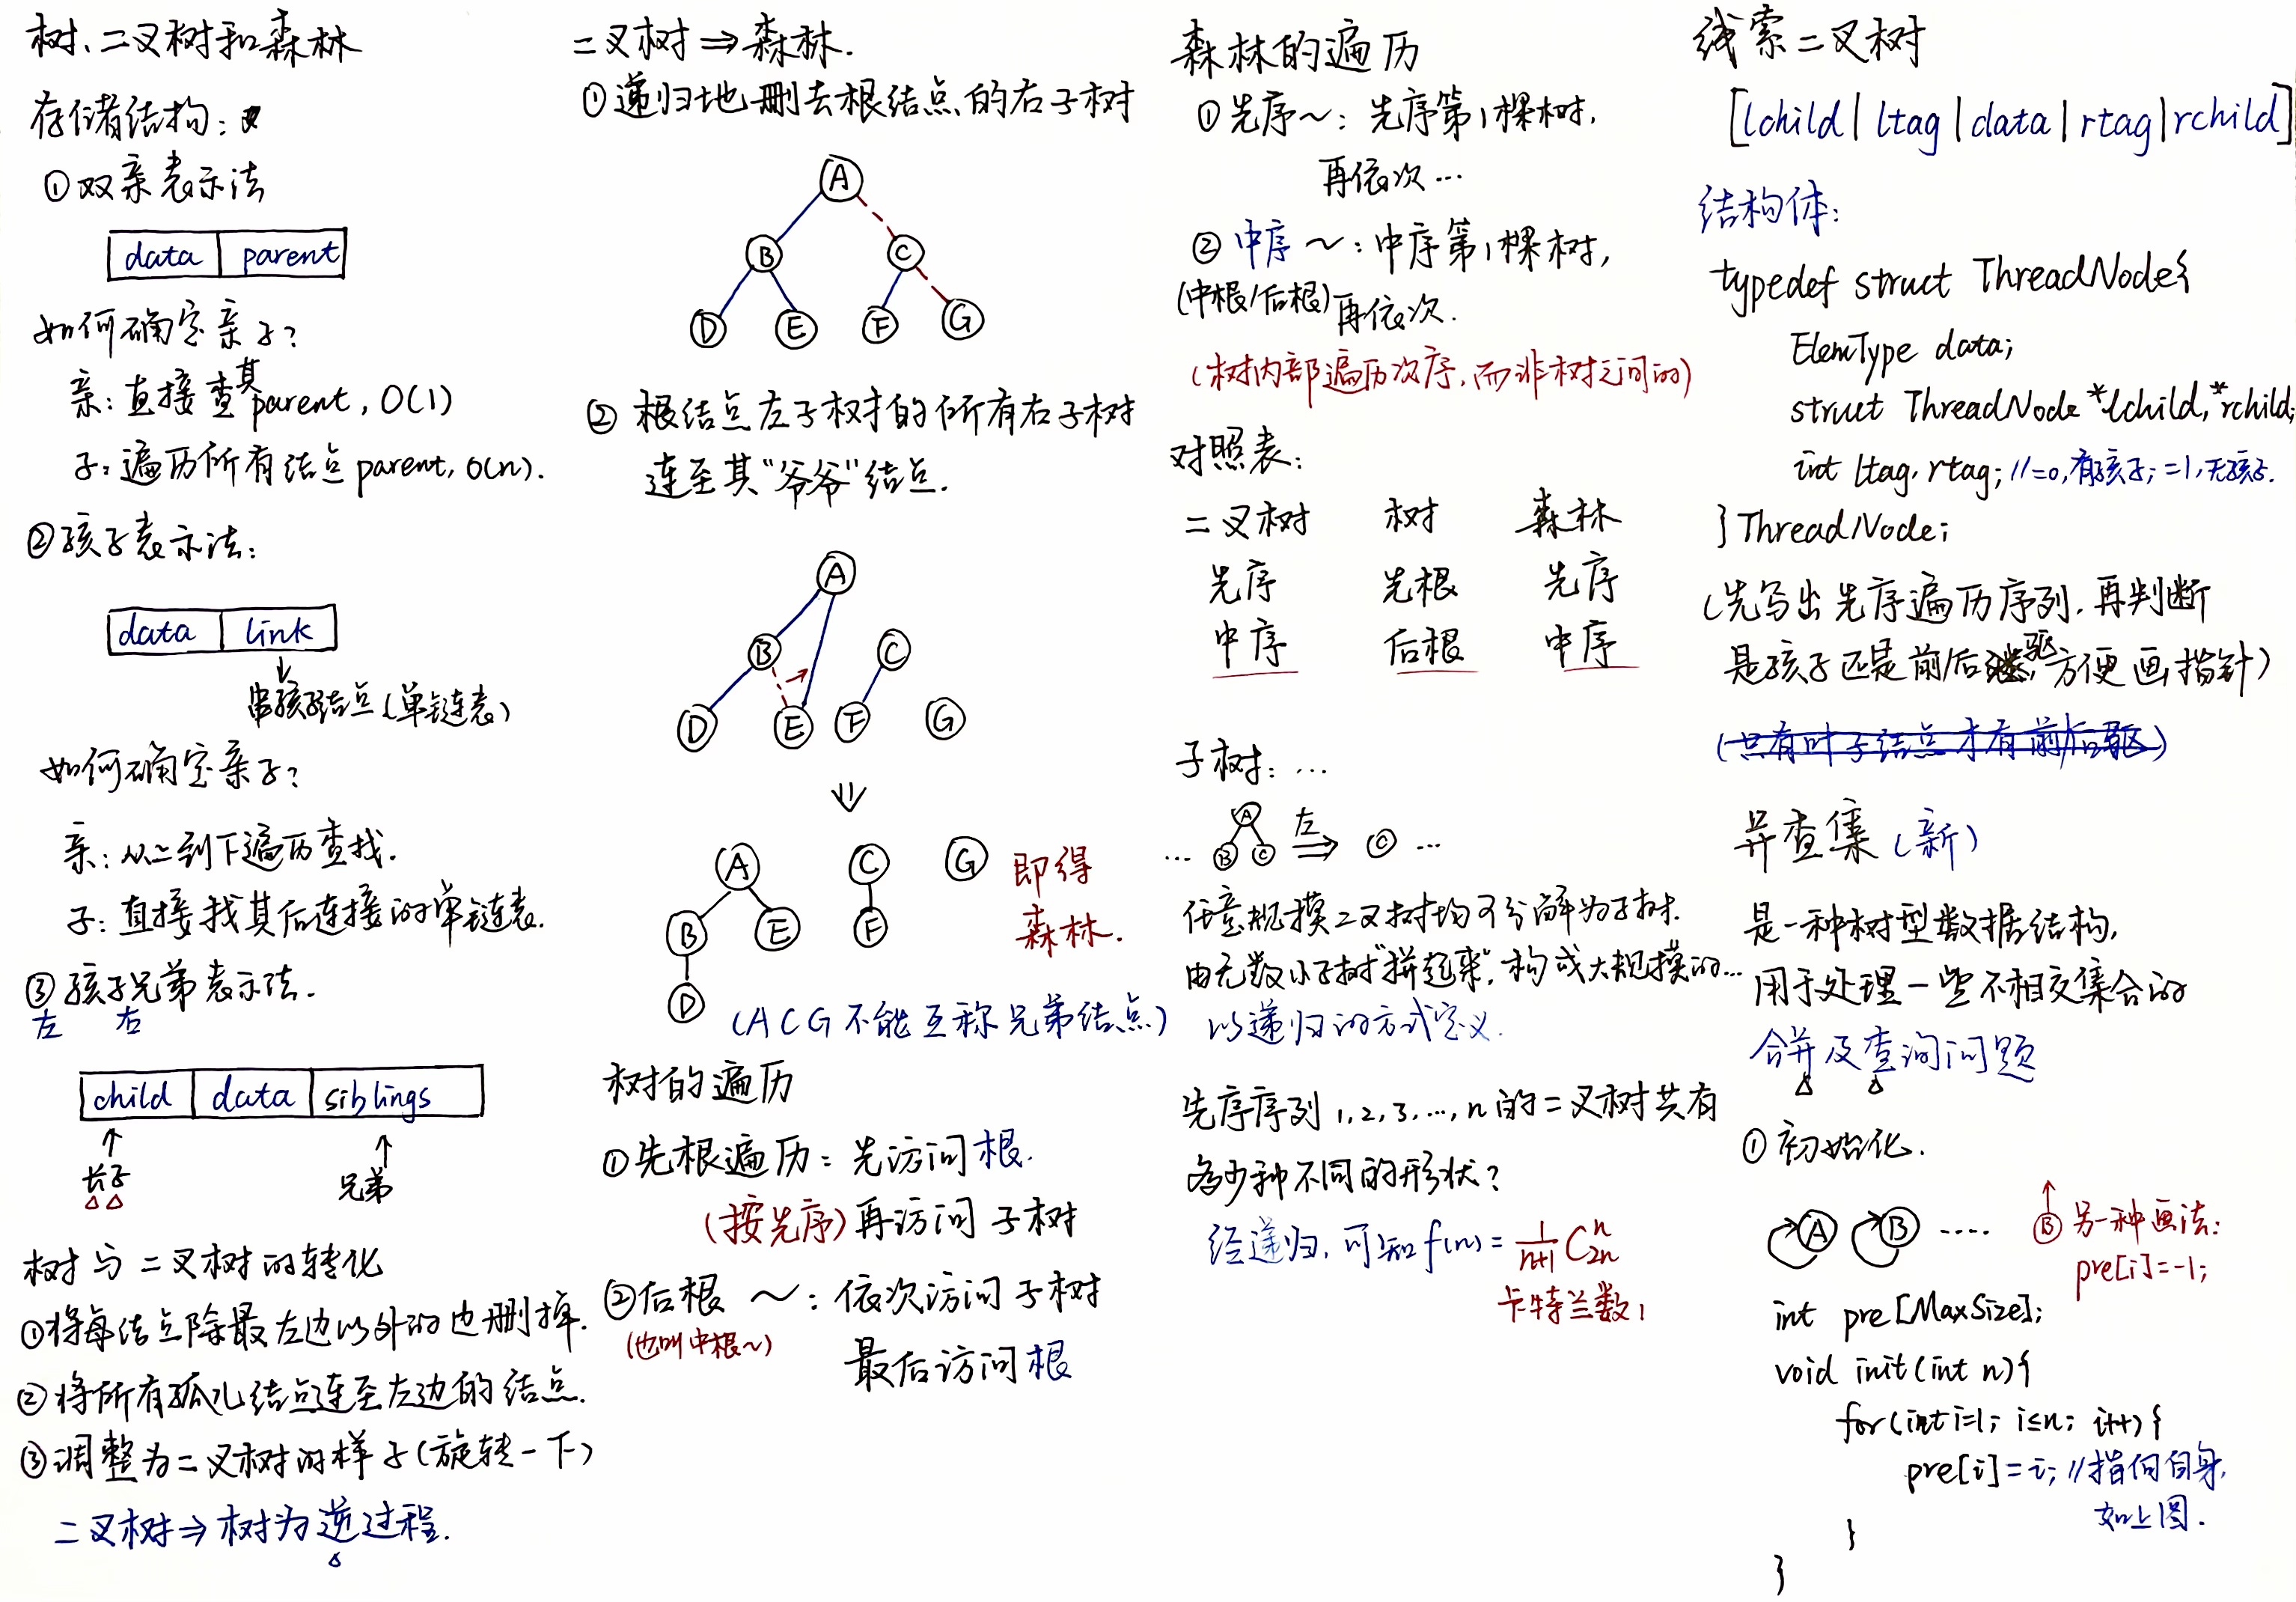 树、二叉树和森林
存储结构：
①双亲表示法
data | parent
如何确定亲子？
亲：直接查其parent, O(1)
子：遍历所有结点parent, O(n).
②孩子表示法：
data | link
串孩子结点(单链表)
如何确定亲子？
亲：从上到下遍历查找.
子：直接找其后连接的单链表.
③孩子兄弟表示法.
左 右
child | data | siblings
长子 兄弟
树与二叉树的转化
①将每结点除最左边以外的边删掉.
②将所有孤儿结点连至左边的结点.
③调整为二叉树的样子(旋转一下)
二叉树⇒树为逆过程.
二叉树⇒森林.
①递归地删去根结点的右子树
A
B C
D E F G
②根结点左子树的所有右子树
连至其“爷爷”结点.
A
B C
D E F G
⇓
A C G 即得
B E F 森林.
D
(A C G 不能互称兄弟结点)
树的遍历
①先根遍历：先访问根.
(按先序)再访问子树
②后根～：依次访问子树
(也叫中根～)
最后访问根
森林的遍历
①先序～：先序第1棵树,
再依次…
②中序～：中序第1棵树,
(中根/后根)再依次.
(树内部遍历次序,而非树之间的)
对照表：
二叉树 树 森林
先序 先根 先序
中序 后根 中序
子树：…
A 左
… B C ⇒ C …
任意规模二叉树均可分解为子树.
由无数小子树“拼起来”,构成大规模的…
以递归的方式定义.
先序序列1,2,3,…,n的二叉树共有
多少种不同的形状？
经递归,可知f(n)= 1/(n+1) C_{2n}^{n}
卡特兰数!
线索二叉树
[lchild | ltag | data | rtag | rchild]
结构体：
typedef struct ThreadNode{
ElemType data;
struct ThreadNode *lchild,*rchild;
int ltag,rtag; //=0,有孩子;=1,无孩子.
}ThreadNode;
(先写出先序遍历序列,再判断
是孩子还是前后驱,方便画指针)
(只有叶子结点才有前/后驱)
并查集(新)
是一种树型数据结构,
用于处理一些不相交集合的
合并及查询问题
①初始化.
A B …. B 另一种画法：
pre[i]=-1;
int pre[MaxSize];
void init(int n){
for(int i=1; i≤n; i++){
pre[i]=i; //指向自身,
如上图.
}
}